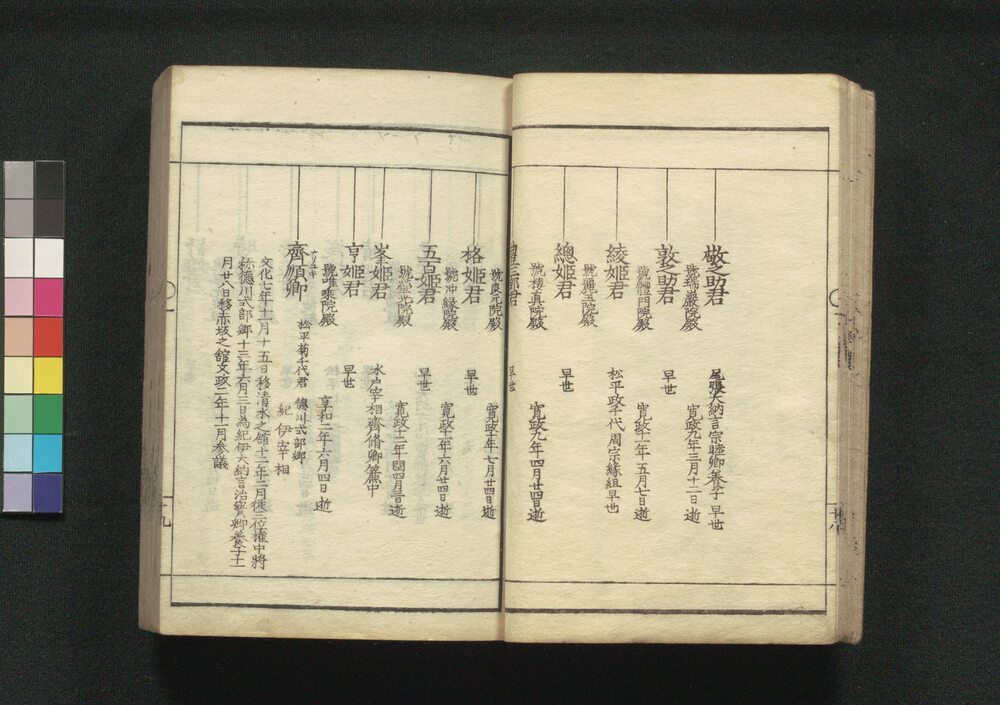 敬之助君
尾張大納言宗睦卿養子 早世
號瑞巖院殿
寛政九年三月十二日逝
敦之助君
早世
院殿
寛政十一年五月七日逝
綾姫君
松平政千代周宗緣組早世
號麗玉院殿
總姫君
早世
號棲真院殿
寛政九年四月廿四日逝
豊三郎君
早世
號良元院殿
寛政十年七月廿四日逝
格姫君
早世
號冲縁院殿
寛政十一年六月廿四日逝
五百姫君
早世
院殿
寛政十二年閏四月二日逝
峯姫君
水戸宰相齊脩卿簾中
亨姫君
早世
號唯乘院殿
享和二年六月四日逝
齊順卿
ナリユキ
松平菊千代君 德川式部卿
紀伊宰相
文化七年十一月十五日移清水之舘十二年二月従三位權中將
称德川式部卿十三年六月三日為紀伊大納言治寶卿養子十一
月廿八日移赤坂之舘文政二年十二月参議
十九
十八